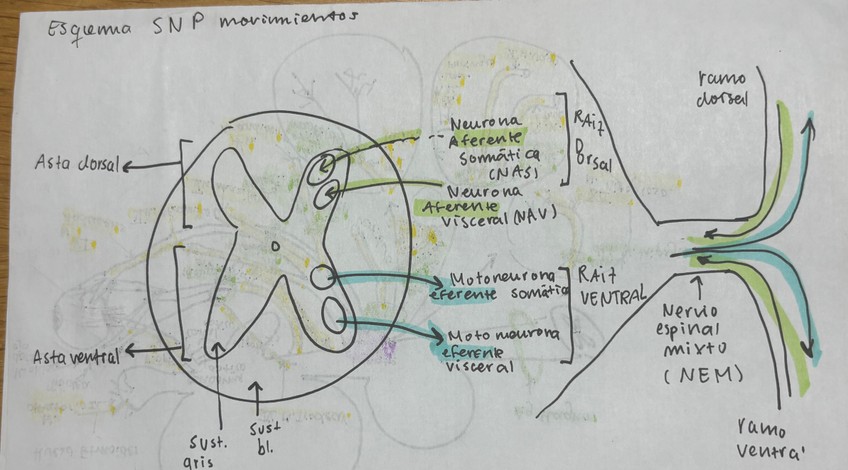 Esquema SNP movimientos
Asta dorsal
Asta ventral
Sust.
gris
Sust
bl.
Neurona
Aferente
Somática
(NAS)
Neurona
Aferente
visceral (NAV)
RAiz
Dorsal
Motoneurona
eferente somática
Moto neurona
eferente
visceral
RAiz
VENTRAL
ramo
dorsal
Nervio
espinal
mixto
(NEM)
ramo
ventral